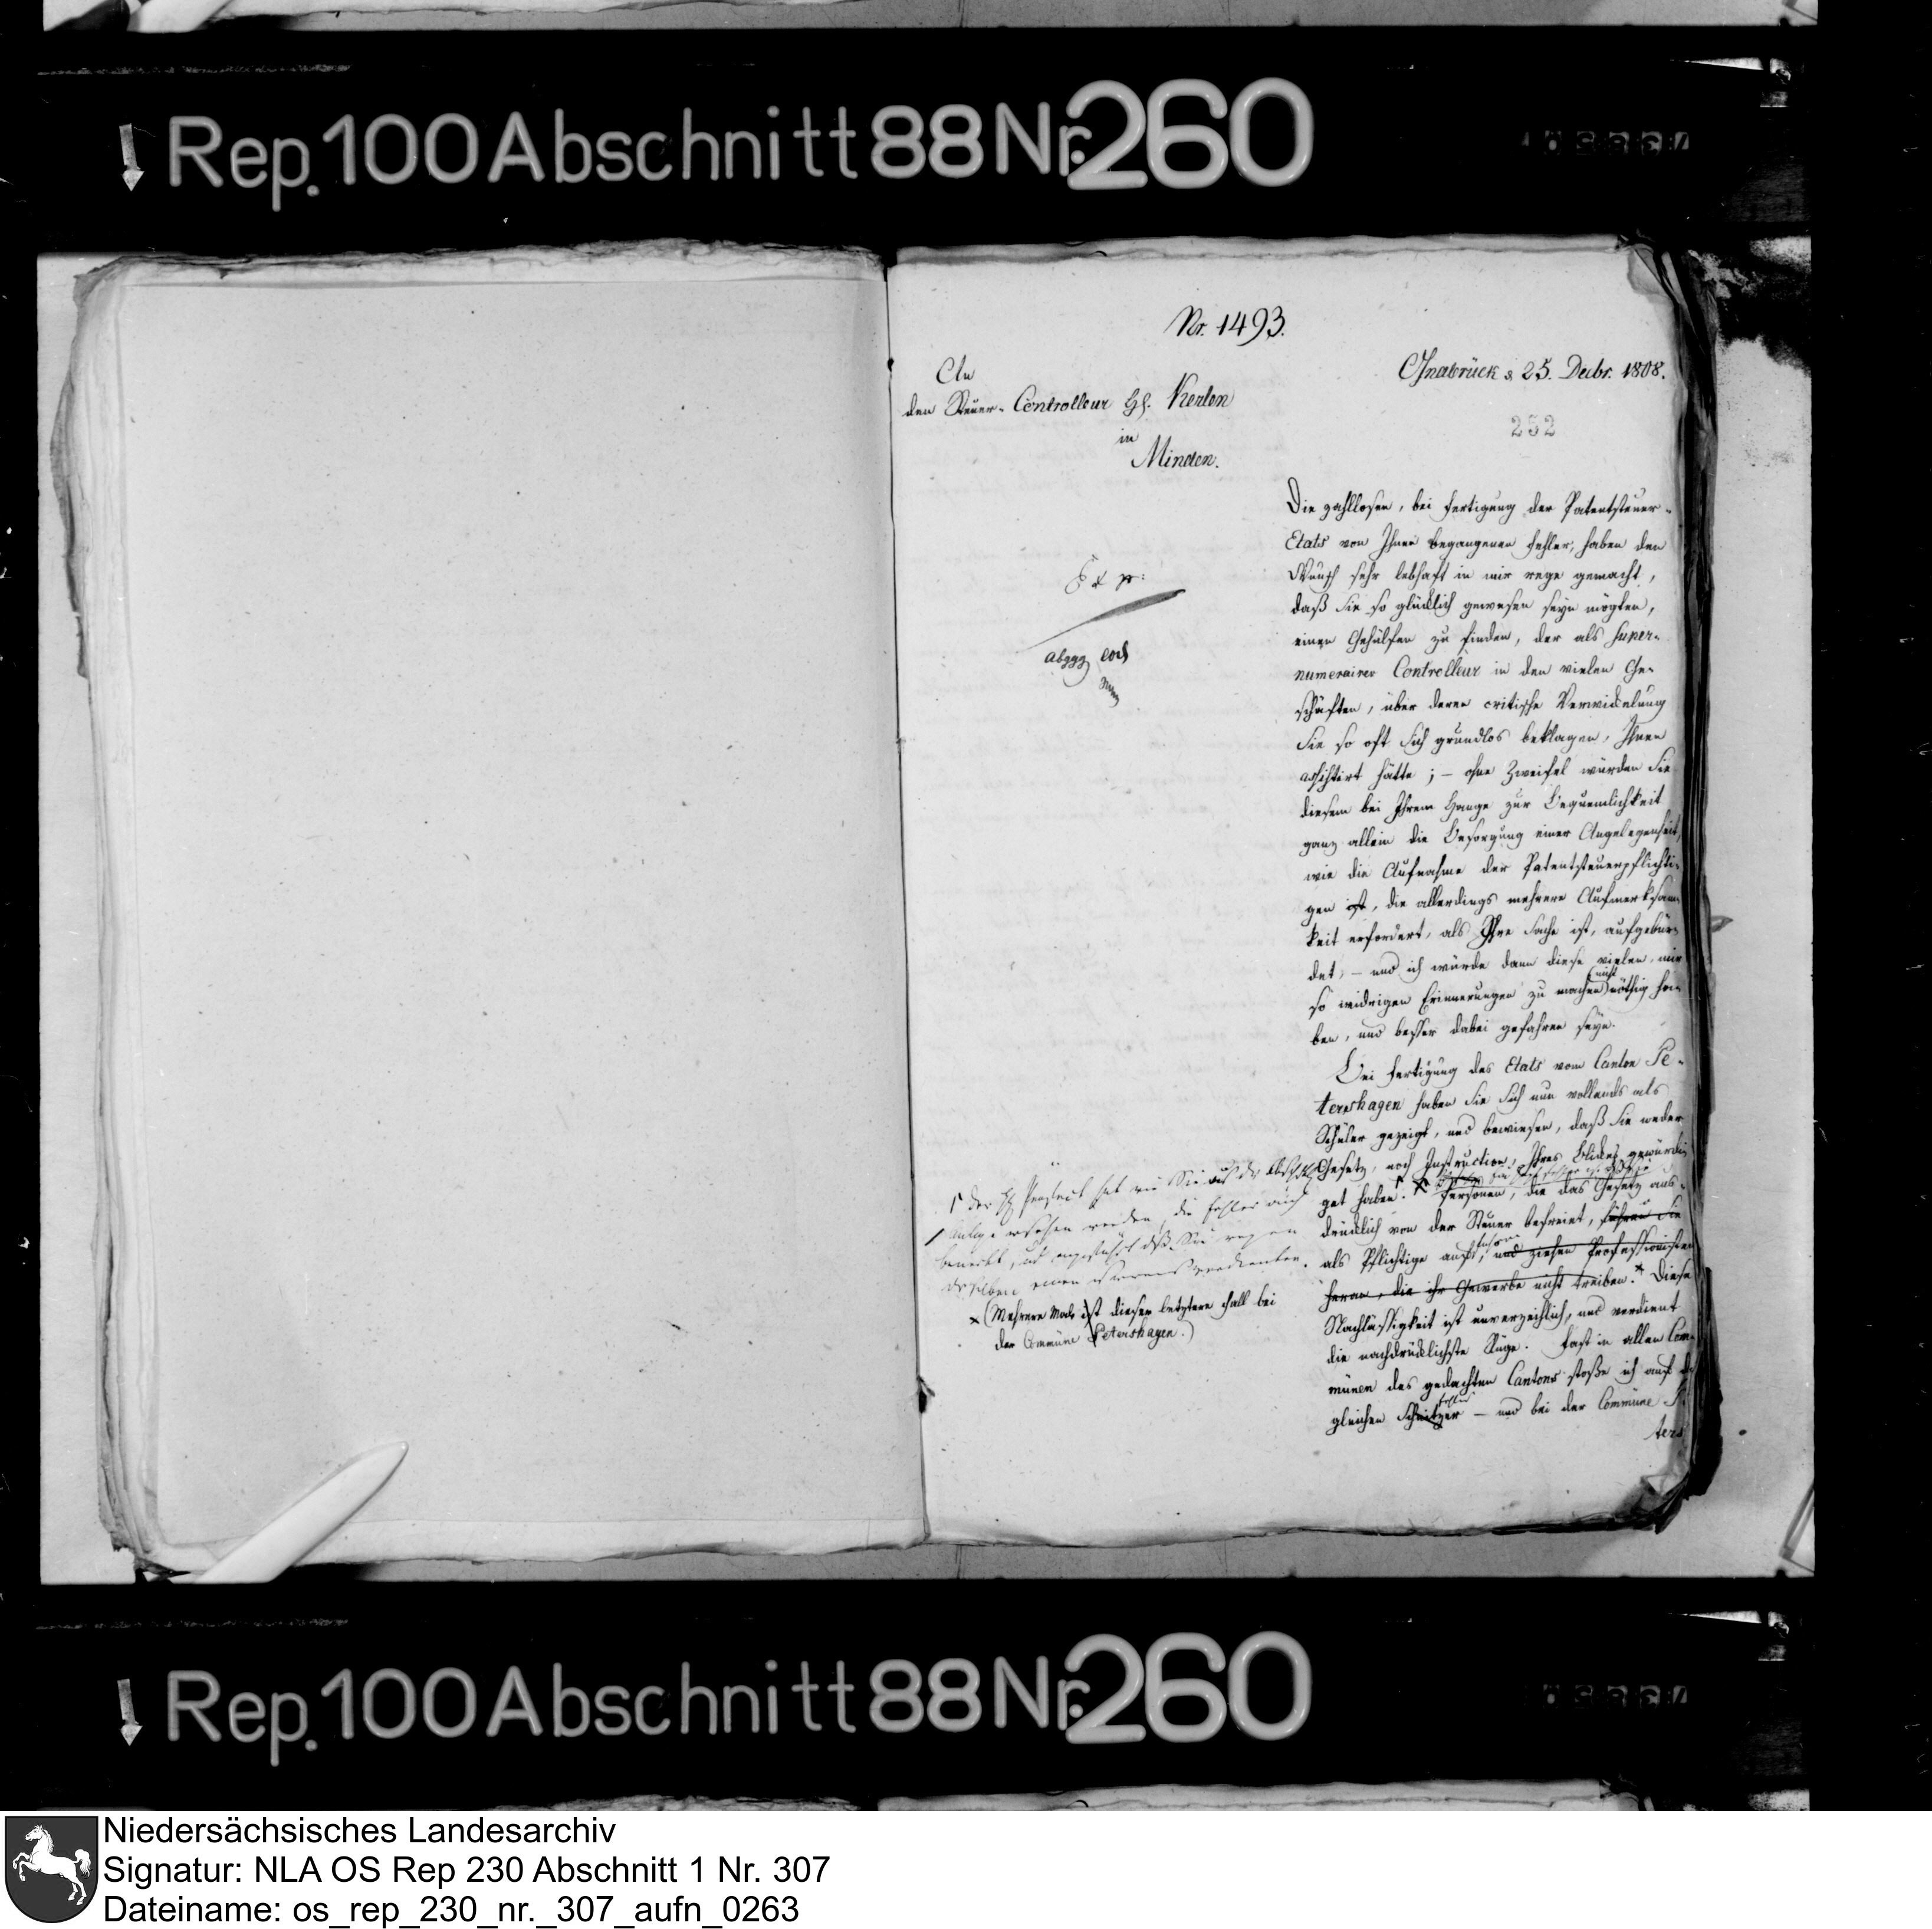 Rep. 100 Abschnitt 88 Nr. 260
Nr. 1493.
Osnabrück d. 25. Decbr. 1808.
An
den Steuer-Controlleur H. Kerlen
in
Minden.
252
Die zahllosen, bei Fertigung der Patentsteuer-
Etats von Ihnen begangenen Fehler, haben den
Wunsch sehr lebhaft in mir rege gemacht,
daß Sie so glücklich gewesen seyn mögten,
einen Gehülfen zu finden, der als Super-
numerairer Controlleur in den vielen Ge-
schäften, über deren critische Verwickelung
Sie so oft sich grundlos beklagen, Ihnen
assistirt hätte; – ohne Zweifel würden Sie
diesem bei Ihrem Hange zur Bequemlichkeit
ganz allein die Besorgung einer Angelegenheit,
wie die Aufnahme der Patentsteuerpflichti-
gen ist, die allerdings mehrere Aufmerksam-
keit erfordert, als Ihre Sache ist, aufgebür-
det – und ich würde dann diese vielen, mir
so widrigen Erinnerungen zu machen nicht nöthig ha-
ben, und besser dabei gefahren seyn.
Bei Fertigung des Etats vom Canton Pe-
tershagen haben Sie sich nun vollends als
Schüler gezeigt, und bewiesen, daß Sie weder
Gesetz, noch Instruction, Ihres Blickes gewürdi-
get haben. Personen, die das Gesetz aus-
drücklich von der Steuer befreiet, führen Sie
als Pflichtige auf, und ziehen Professionisten
heran, die ihr Gewerbe nicht treiben. * Diese
Nachlässigkeit ist unverzeihlich, und verdient
die nachdrücklichste Rüge. Fast in allen Com-
münen des gedachten Cantons stoße ich auf
gleichen Schnitzer Fehler – und bei der Commüne
ters
Exp:
abggg eod
der H Praefect hat wie Sie aus der
Anlage ersehen werden, die Fehler auch
bemerkt, und angeführt daß Sie wegen
derselben einen Verweis verdienten.
x (Mehrere Male ist dieser letztere Fall bei
der Commüne Petershagen.)
Rep. 100 Abschnitt 88 Nr. 260
Niedersächsisches Landesarchiv
Signatur: NLA OS Rep 230 Abschnitt 1 Nr. 307
Dateiname: os_rep_230_nr._307_aufn_0263